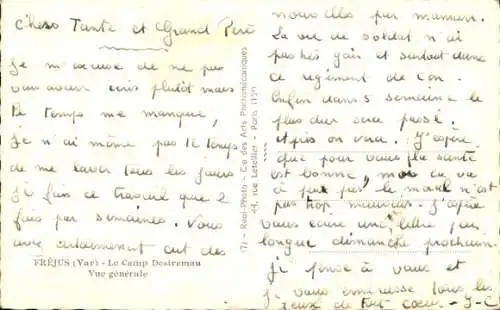 Chers Tante et Grand Père
Je m'excuse de ne pas
vous avoir écris plutôt mais
le temps me manque,
Je n'ai même pas le temps
de me laver tous les jours
Je fais ce travail que 2
fois par semaines. Vous
avez certainement eut des
FRÉJUS (Var) - Le Camp Destremau
Vue générale
(7) - Real-Photo - Cie des Arts Photomécaniques
44, rue Letellier - Paris (15e)
nouvelles par maman.
La vie de soldat n'ai
pas très gai et surtout dans
ce régiment de con.
Enfin dans 5 semaine le
plus dur sera passé.
Après on verra. J'espère
que pour vous la santé
est bonne, moi ça va
à peu près le moral n'est
pas trop mauvais. J'espère
vous écrire une lettre plus
longue dimanche prochain.
Je pense à vous et
je vous embrasse tous les
de Fort coeur - J-C